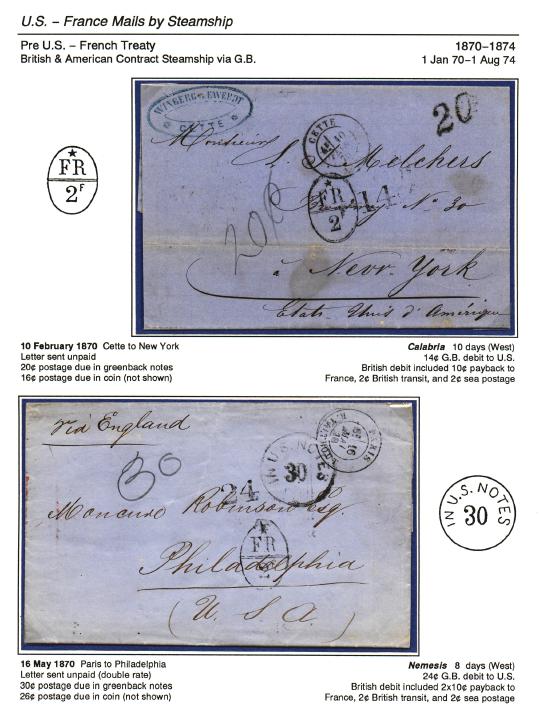 U.S. – France Mails by Steamship
Pre U.S. – French Treaty
1870–1874
British & American Contract Steamship via G.B.
1 Jan 70–1 Aug 74
WINBERG & EWERDT
CETTE
20
CETTE
Monsieur
L. Melchers
FR
2F
FR
2F
14
No 30
20
à New York
Etats-Unis d'Amérique
10 February 1870 Cette to New York
Letter sent unpaid
20¢ postage due in greenback notes
16¢ postage due in coin (not shown)
Calabria 10 days (West)
14¢ G.B. debit to U.S.
British debit included 10¢ payback to
France, 2¢ British transit, and 2¢ sea postage
via England
PARIS
16
MAI
70
30
24
IN U.S. NOTES
30
Robinson Esq.
FR
2F
Philadelphia
(U.S.A.)
IN U.S. NOTES
30
16 May 1870 Paris to Philadelphia
Letter sent unpaid (double rate)
30¢ postage due in greenback notes
26¢ postage due in coin (not shown)
Nemesis 8 days (West)
24¢ G.B. debit to U.S.
British debit included 2x10¢ payback to
France, 2¢ British transit, and 2¢ sea postage